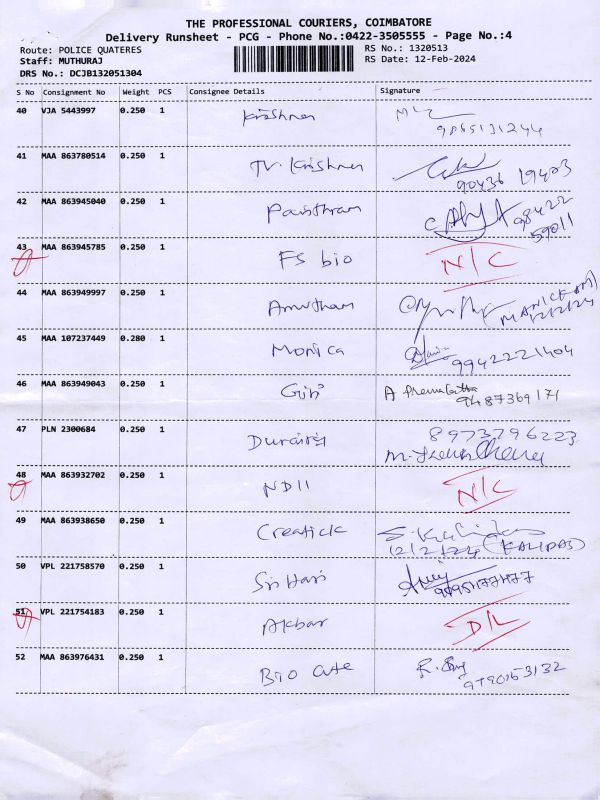 THE PROFESSIONAL COURIERS, COIMBATORE
Delivery Runsheet - PCG - Phone No.:0422-3505555 - Page No.:4
Route: POLICE QUATERES RS No.: 1320513
Staff: MUTHURAJ RS Date: 12-Feb-2024
DRS No.: DCJB132051304
S No Consignment No Weight PCS Consignee Details Signature
40 VJA 5443997 0.250 1 Krishnen
9865131244
41 MAA 863780514 0.250 1 TV. Krishnen
90436 19403
42 MAA 863945040 0.250 1
98422
59011
43 MAA 863945785 0.250 1 FS bio N/C
44 MAA 863949997 0.250 1 (MANICKAM)
12/2/24
45 MAA 107237449 0.280 1 Monica
9942221404
46 MAA 863949043 0.250 1 Giri
9487369171
47 PLN 2300684 0.250 1 8973796223
48 MAA 863932702 0.250 1 NDII N/C
49 MAA 863938650 0.250 1 Creatick
12/2/24 (KALIDAS)
50 VPL 221758570 0.250 1 Sri Hari
51 VPL 221754183 0.250 1 Akbar D/L
52 MAA 863976431 0.250 1 Bio Cute